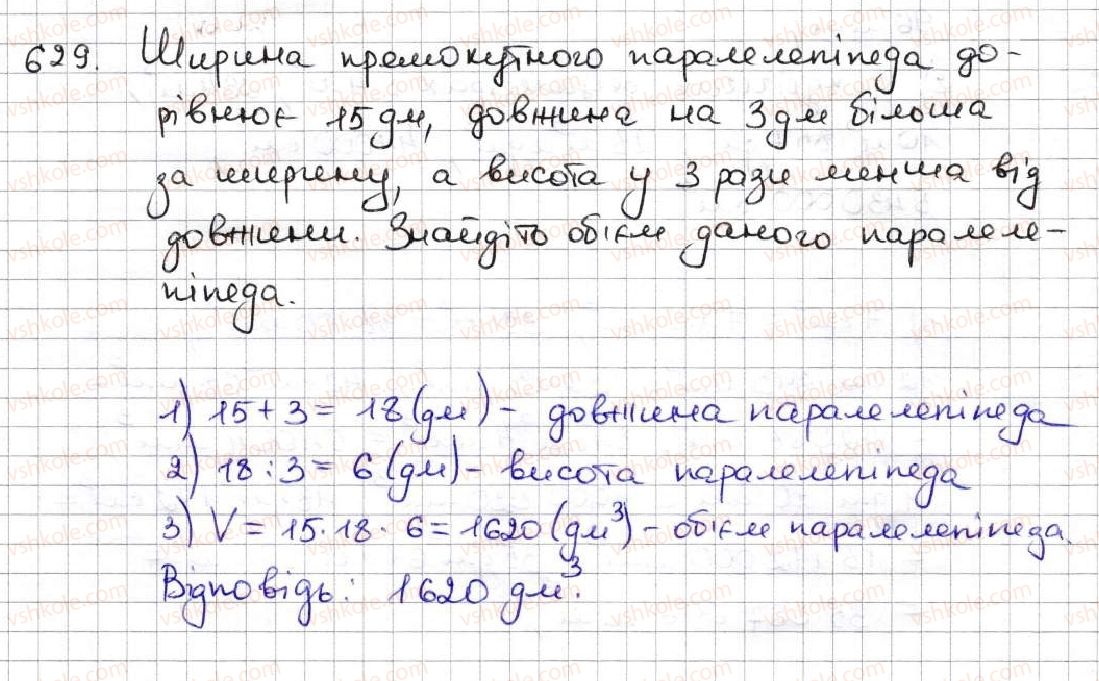 629. Ширина прямокутного паралелепіпеда до-
рівнює 15 дм, довжина на 3 дм більша
за ширину, а висота у 3 рази менша від
довжини. Знайдіть об'єм даного паралеле-
піпеда.
1) 15 + 3 = 18 (дм) - довжина паралелепіпеда
2) 18 : 3 = 6 (дм) - висота паралелепіпеда
3) V = 15 · 18 · 6 = 1620 (дм³) - об'єм паралелепіпеда.
Відповідь: 1620 дм³.